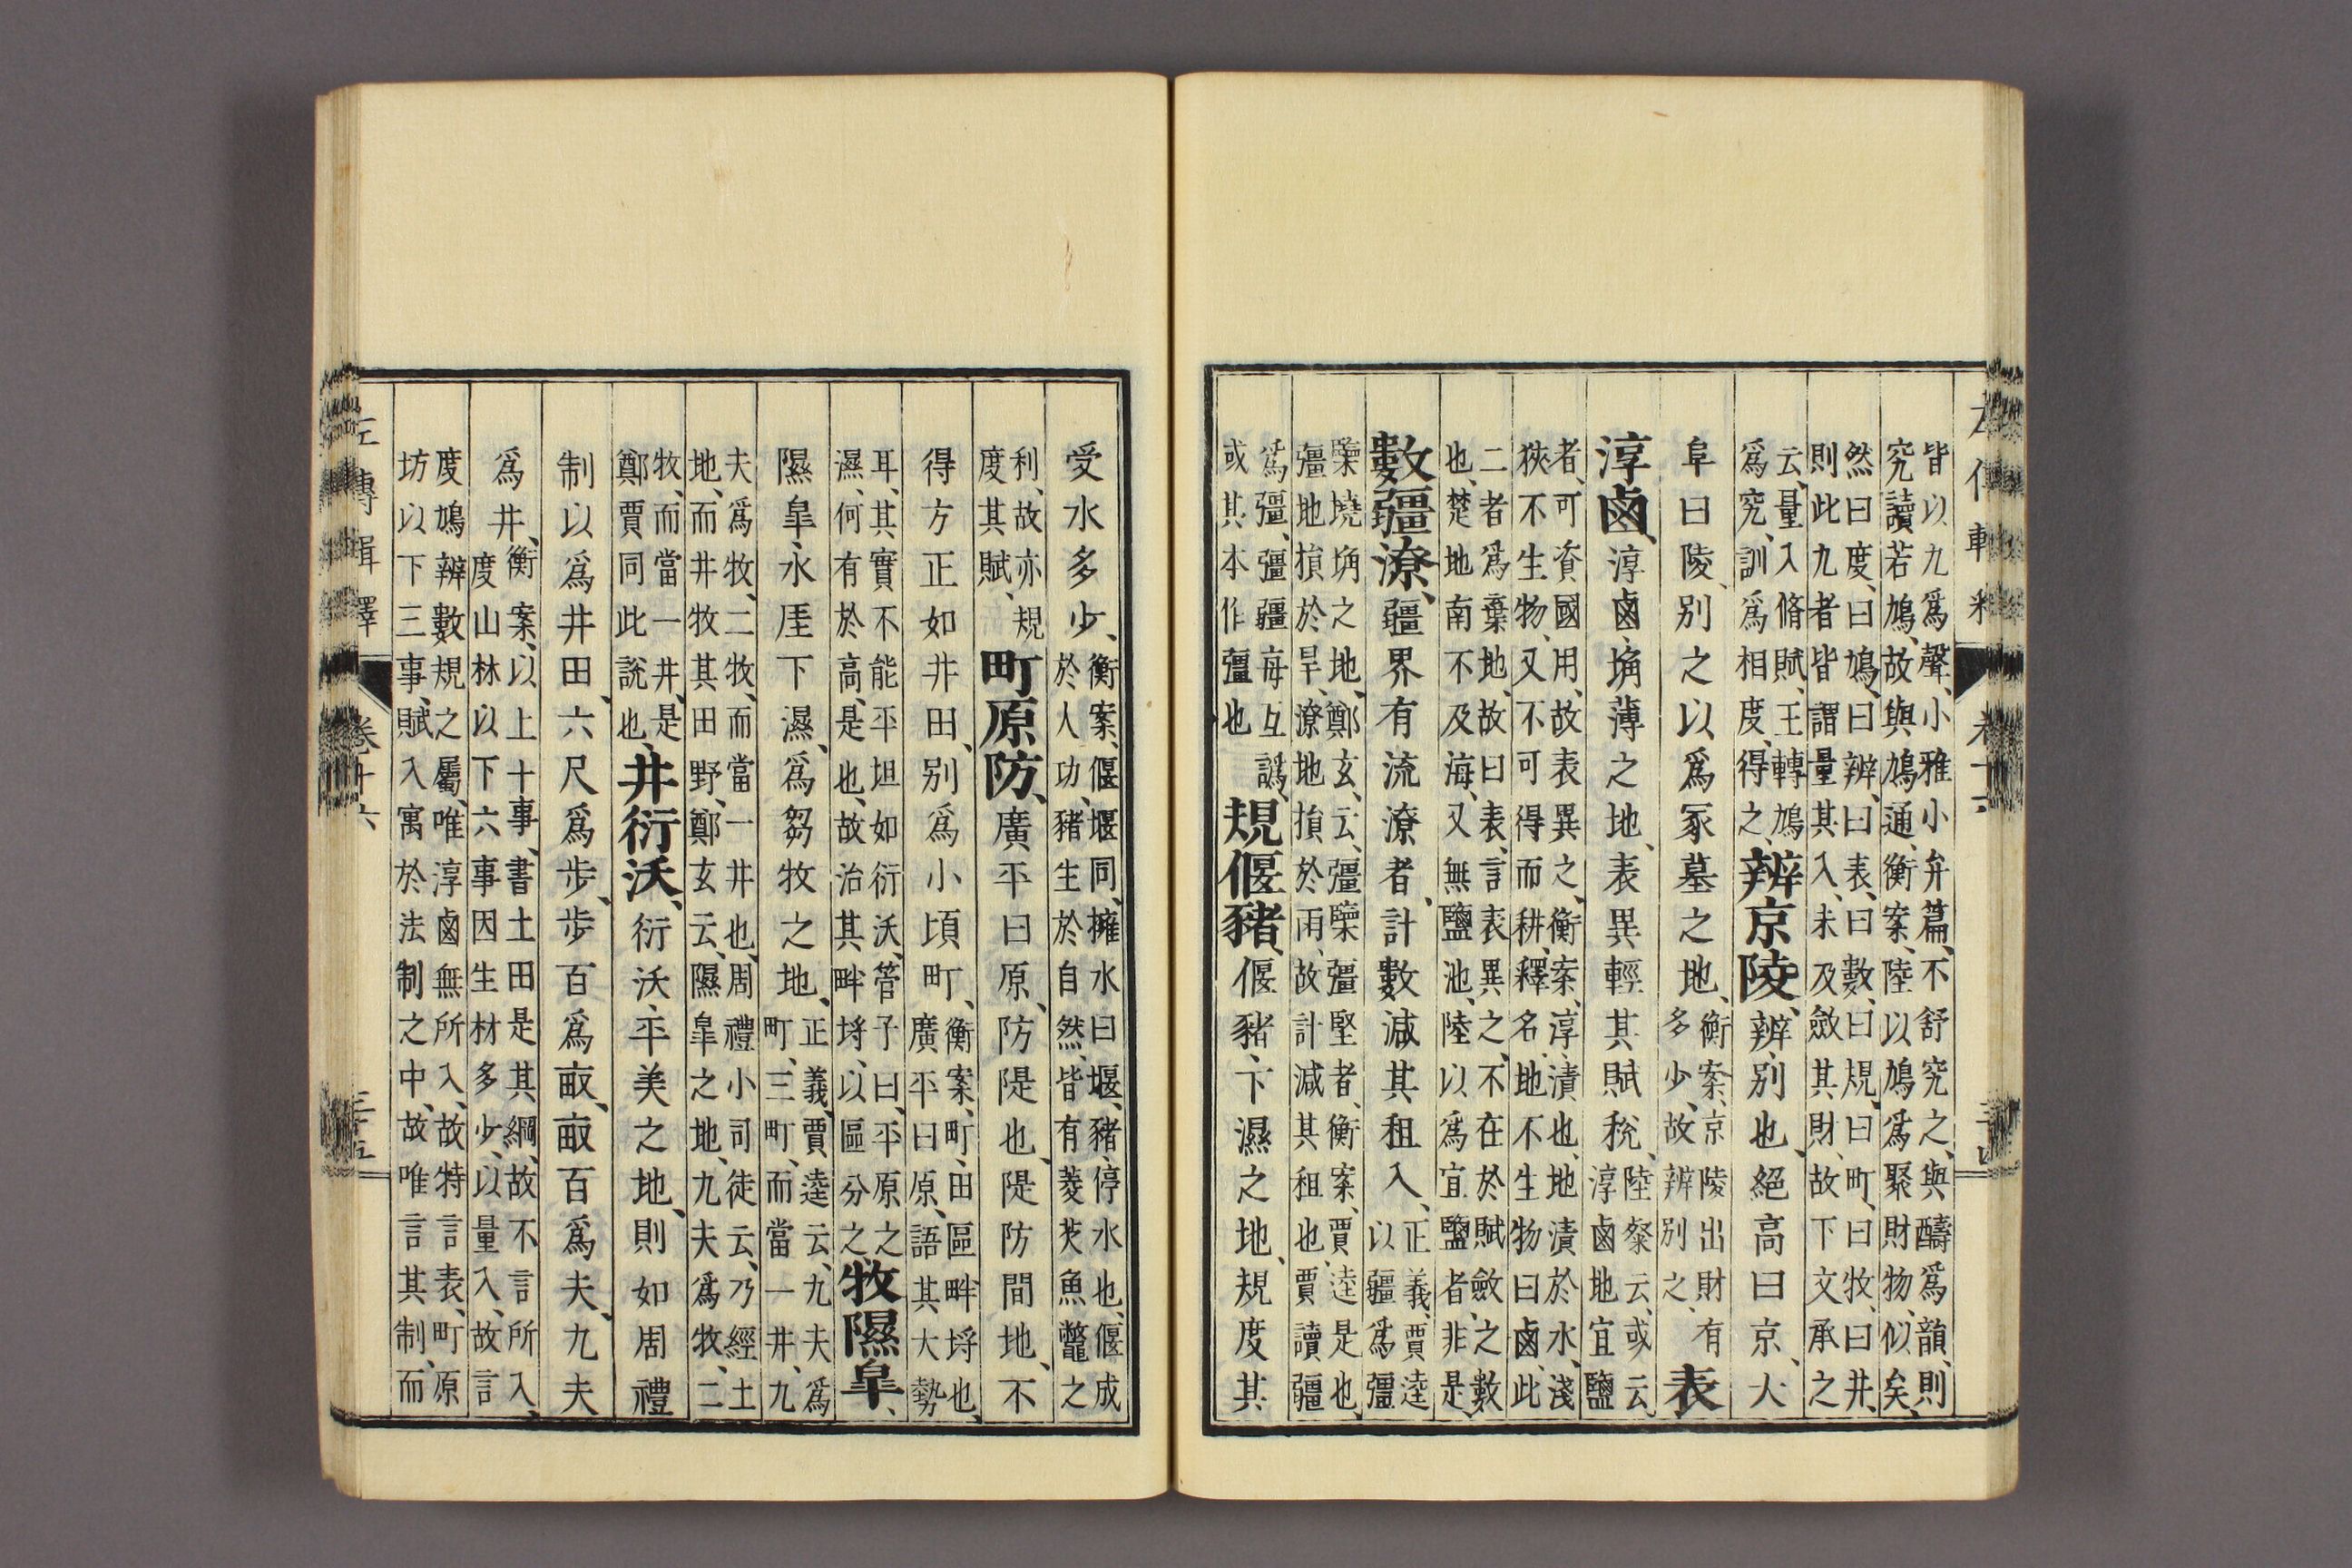 皆以九爲聲、小雅小弁篇、不舒究之、與醻爲韻、則
究讀若鳩、故與鳩通、衡案、陸以鳩爲聚財物、似矣、
然曰度、曰鳩、曰辨、曰表、曰數、曰規、曰町、曰牧、曰井、
則此九者皆謂量其入、未及斂其財、故下文承之
云、量入脩賦、王轉鳩
爲究、訓爲相度、得之、
辨京陵、辨、別也、絕高曰京、大
阜曰陵、別之以爲冢墓之地、
衡案、京陵出財有
多少、故辨別之、
表
淳鹵、淳鹵、埆薄之地、表異輕其賦稅、
陸粲云、或云、
淳鹵地宜鹽
者、可資國用、故表異之、衡案、淳、漬也、地漬於水、淺
狹不生物、又不可得而耕、釋名、地不生物曰鹵、此
二者爲棄地、故曰表、言表異之、不在於賦斂之數
也、楚地南不及海、又無鹽池、陸以爲宜鹽者、非是、
數疆潦、疆界有流潦者、計數減其租入、
正義、賈逵
以疆爲彊
墝埆之地、鄭玄云、彊堅者、衡案、賈逵是也、
彊地損於旱、潦地損於雨、故計減其租也、賈讀疆
爲彊、彊疆每互譌、
或其本作彊也
規偃豬、偃豬、下濕之地、規度其
左傳輯釋 卷十六
受水多少、
衡案、偃堰同、擁水曰堰、豬、停水也、偃成
於人功、豬生於自然、皆有菱芡魚鼈之
利、故亦規
度其賦、
町原防、廣平曰原、防、隄也、隄防間地、不
得方正如井田、別爲小頃町、
衡案、町、田區畔埒也、
廣平曰原、語其大勢
耳、其實不能平坦如衍沃、管子曰、平原之
濕、何有於高、是也、故治其畔埒、以區分之
牧隰皐、
隰皐、水厓下濕、爲芻牧之地、
正義、賈逵云、九夫爲
町、三町、而當一井、九
夫爲牧、二牧、而當一井也、周禮小司徒云、乃經土
地、而井牧其田野、鄭玄云、隰皐之地、九夫爲牧、二
牧、而當一井、是
鄭賈同此說也、
井衍沃、衍沃、平美之地、則如周禮
制以爲井田、六尺爲步、步百爲畝、畝百爲夫、九夫
爲井、
衡案、以上十事、書土田是其綱、故不言所入、
度山林以下六事因生材多少、以量入、故言
度鳩辨數規之屬、唯淳鹵無所入、故特言表、町原
坊以下三事、賦入寓於法制之中、故唯言其制、而
左傳輯釋 卷十六 三十五